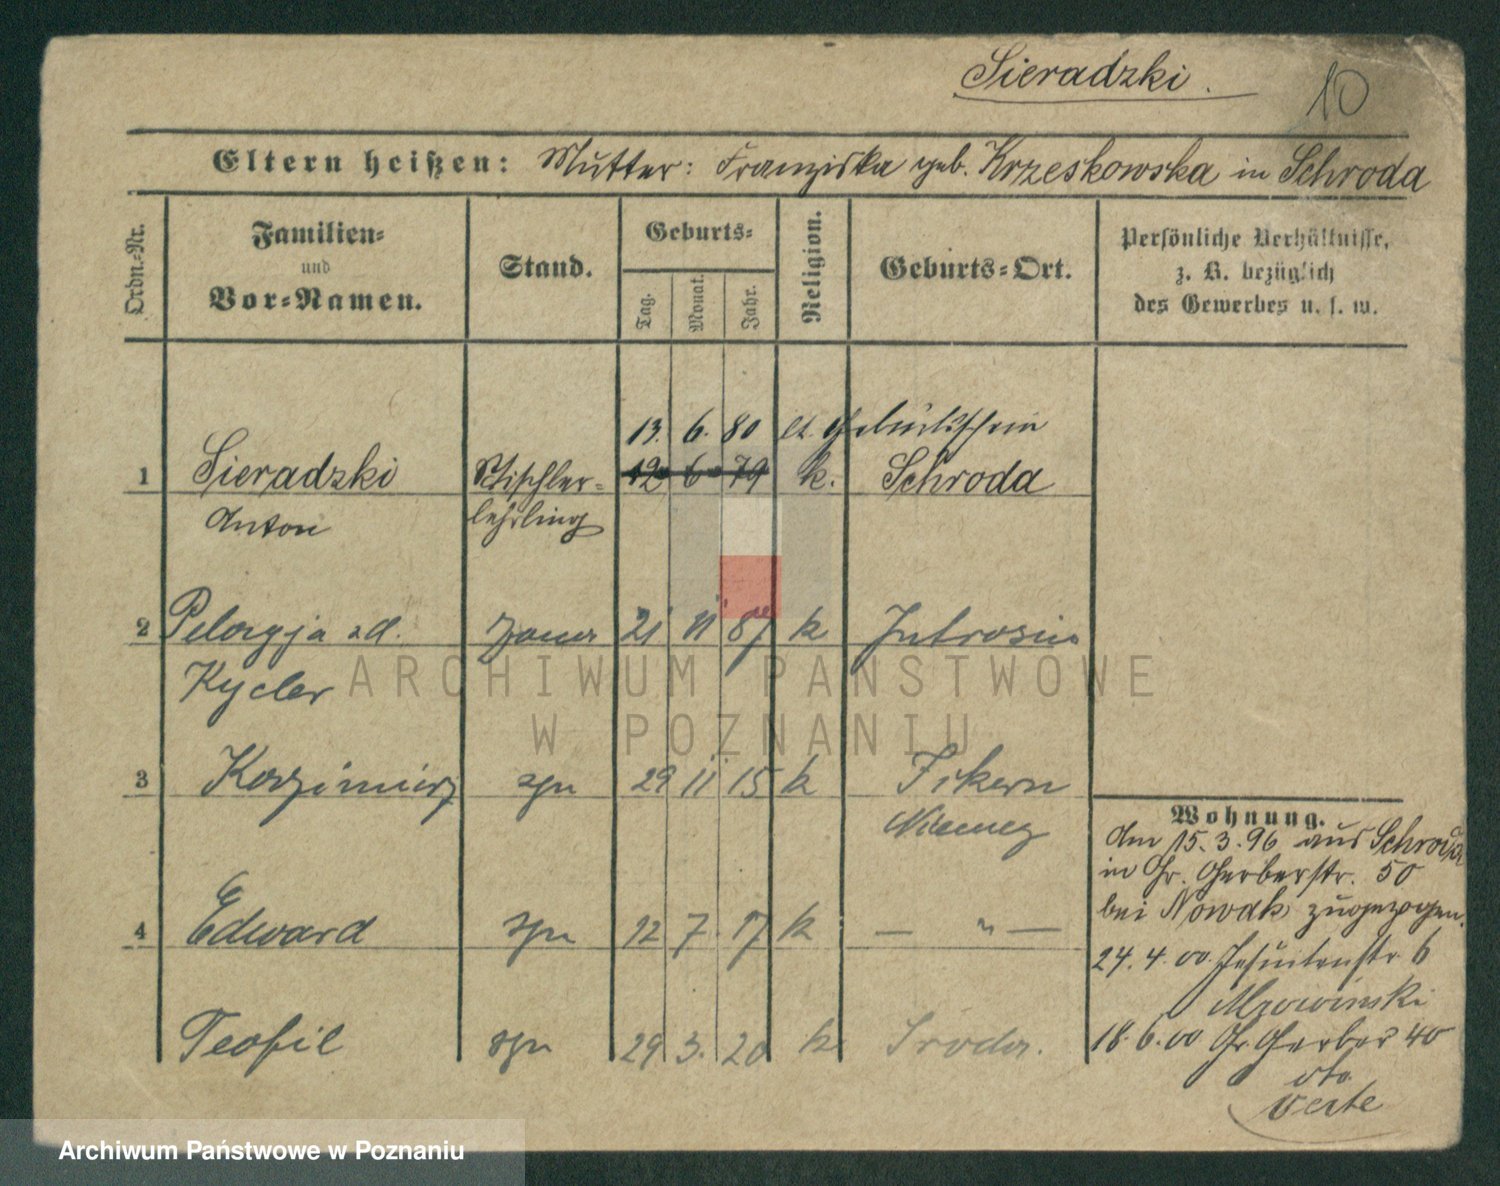 Sieradzki.
10
Eltern heißen: Mutter: Franziska geb. Krzeskowska in Schroda
Ordn.-Nr.
Familien-
und
Vor-Namen.
Stand.
Geburts-
Tag.
Monat.
Jahr.
Religion.
Geburts-Ort.
Persönliche Verhältnisse,
z. B. bezüglich
des Gewerbes u. s. w.
13. 6. 80 lt. Geburtsschein
1 Sieradzki Tischler- 12 6 79 k. Schroda
Anton lehrling
2 Pelagja zd. żona 21 11 87 k Jutrosin
Kycler
3 Kazimierz syn 29 11 15 k
Niemcy
4 Edward syn 12 7 17 k — " —
Teofil syn 29 3. 20 k Środa.
Wohnung.
Am 15.3.96 aus Schroda
in Gr. Gerberstr. 50
bei Nowak zugezogen.
24.4.00. Jesuitenstr 6
Mrowinski
18.6.00 Gr. Gerber 40
verte
ARCHIWUM PAŃSTWOWE
W POZNANIU
Archiwum Państwowe w Poznaniu